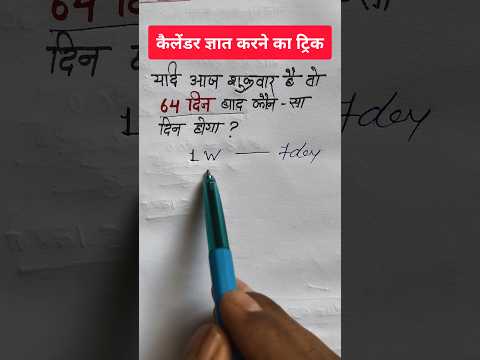 कैलेंडर ज्ञात करने का ट्रिक
यदि आज शुक्रवार है तो
64 दिन बाद कौन-सा
दिन होगा ?
1 W — 7 day